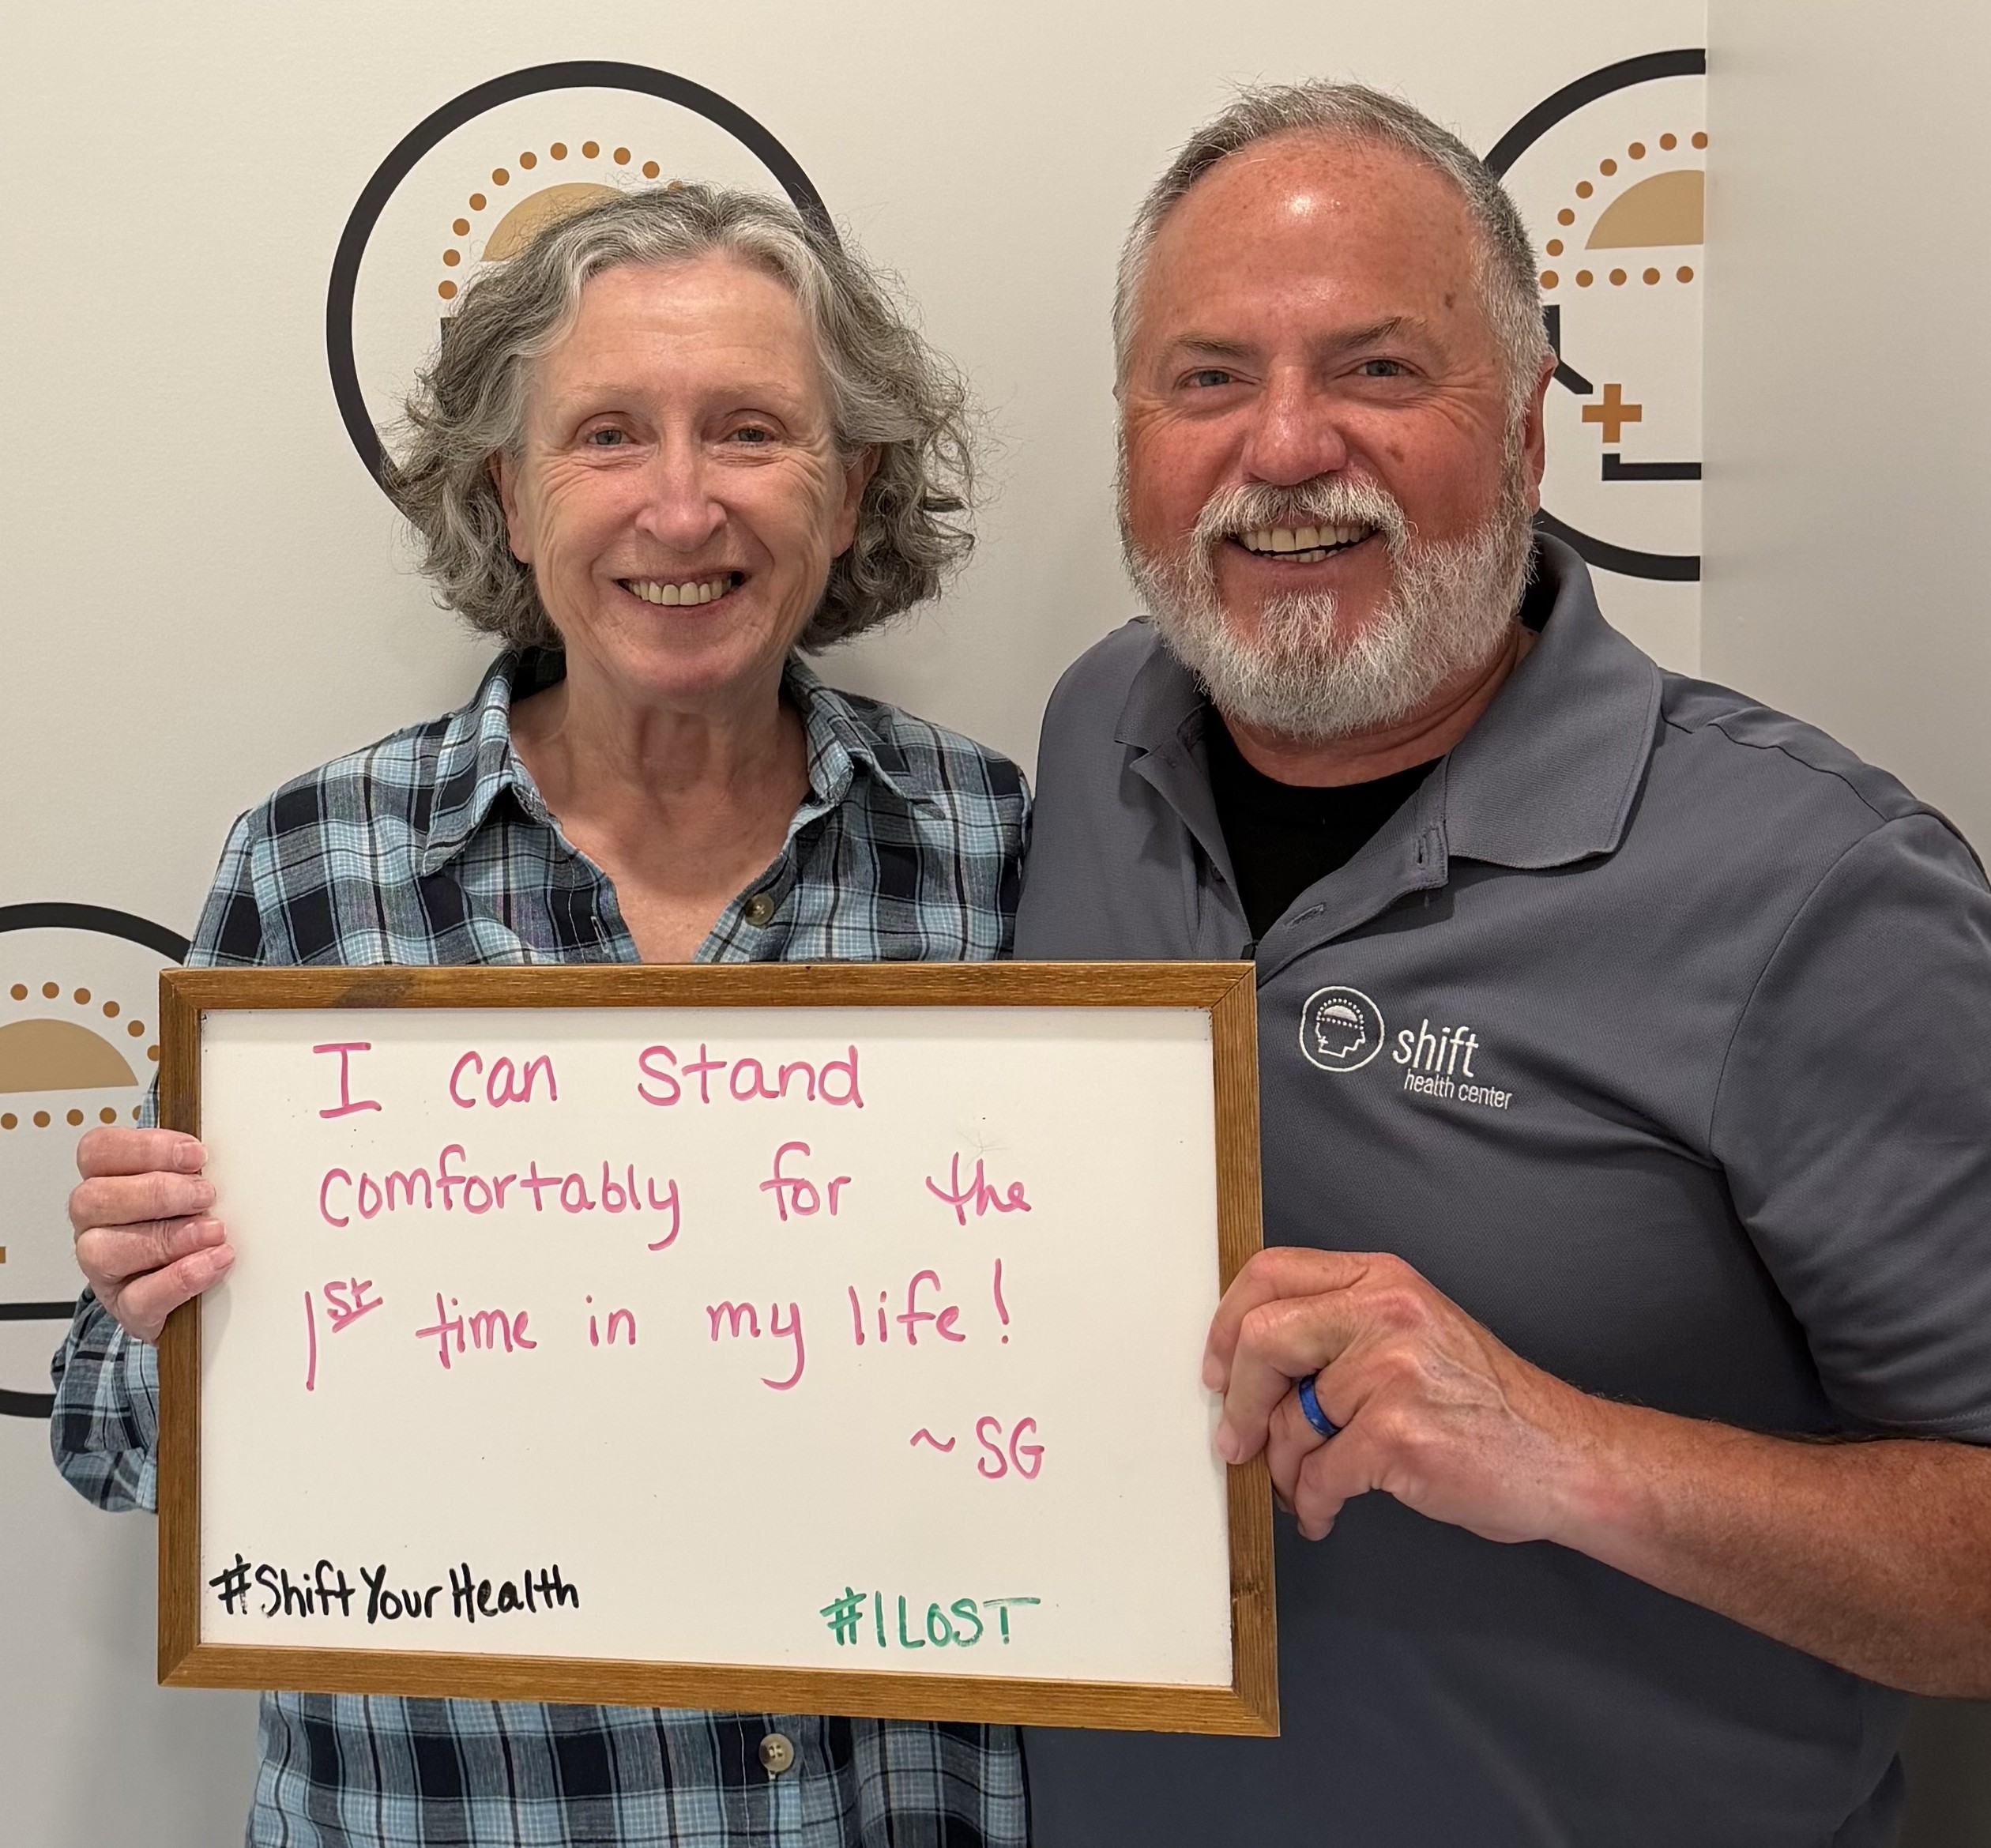 I can stand
comfortably for the
1st time in my life!
~SG
#ShiftYourHealth
#ILOST
shift
health center